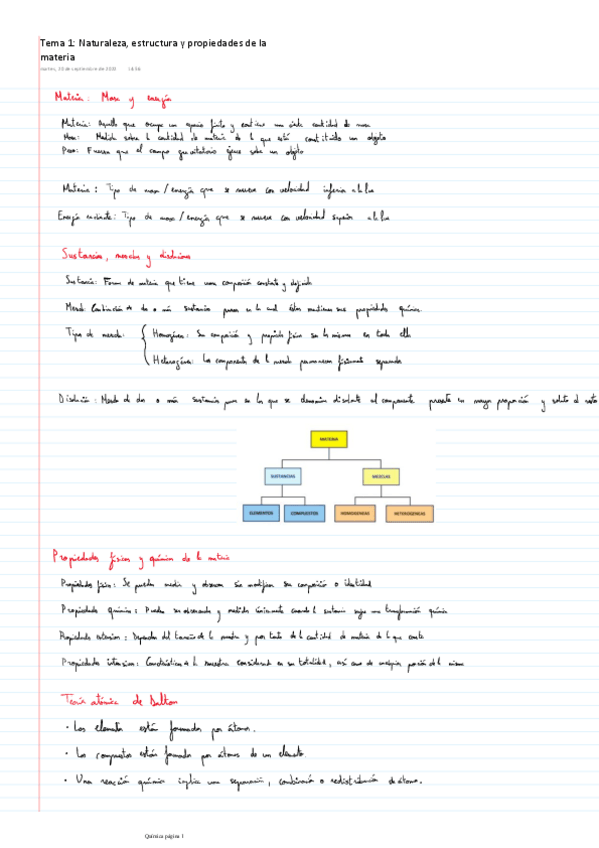 Tema 1: Naturaleza, estructura y propiedades de la
materia
martes, 20 de septiembre de 2022 14:56
Materia: Masa y energía
Materia: Aquello que ocupa un espacio finito y contiene una cantidad de masa
Masa: Medida sobre la cantidad de materia de la que está constituido un objeto
Peso: Fuerza que el campo gravitatorio ejerce sobre un objeto
Materia: Tipo de masa/energía que se mueve con velocidad inferior a la luz
Energía radiante: Tipo de masa/energía que se mueve con velocidad superior a la luz
Sustancias, mezclas y disoluciones
Sustancia: Forma de materia que tiene una composición constante y definida
Mezcla: Combinación de dos o más sustancias puras en la cual éstas mantienen sus propiedades químicas.
Tipos de mezcla: Homogénea: Su composición y propiedades físicas son las mismas en toda ella
Heterogénea: Los componentes de la mezcla permanecen físicamente separados
Disolución: Mezcla de dos o más sustancias puras en la que se denomina disolvente al componente presente en mayor proporción y soluto al resto
MATERIA
SUSTANCIAS MEZCLAS
ELEMENTOS COMPUESTOS HOMOGENEAS HETEROGENEAS
Propiedades físicas y químicas de la materia
Propiedades físicas: Se pueden medir y observar sin modificar su composición o identidad
Propiedades químicas: Pueden ser observadas y medidas únicamente cuando la sustancia sufre una transformación química
Propiedades extensivas: Dependen del tamaño de la muestra y por tanto de la cantidad de materia de la que consta
Propiedades intensivas: Características de la muestra considerada en su totalidad, así como de cualquier porción de la misma
Teoría atómica de Dalton
· Los elementos están formados por átomos.
· Los compuestos están formados por átomos de un elemento.
· Una reacción química implica una separación, combinación o redistribución de átomos.
Química página 1